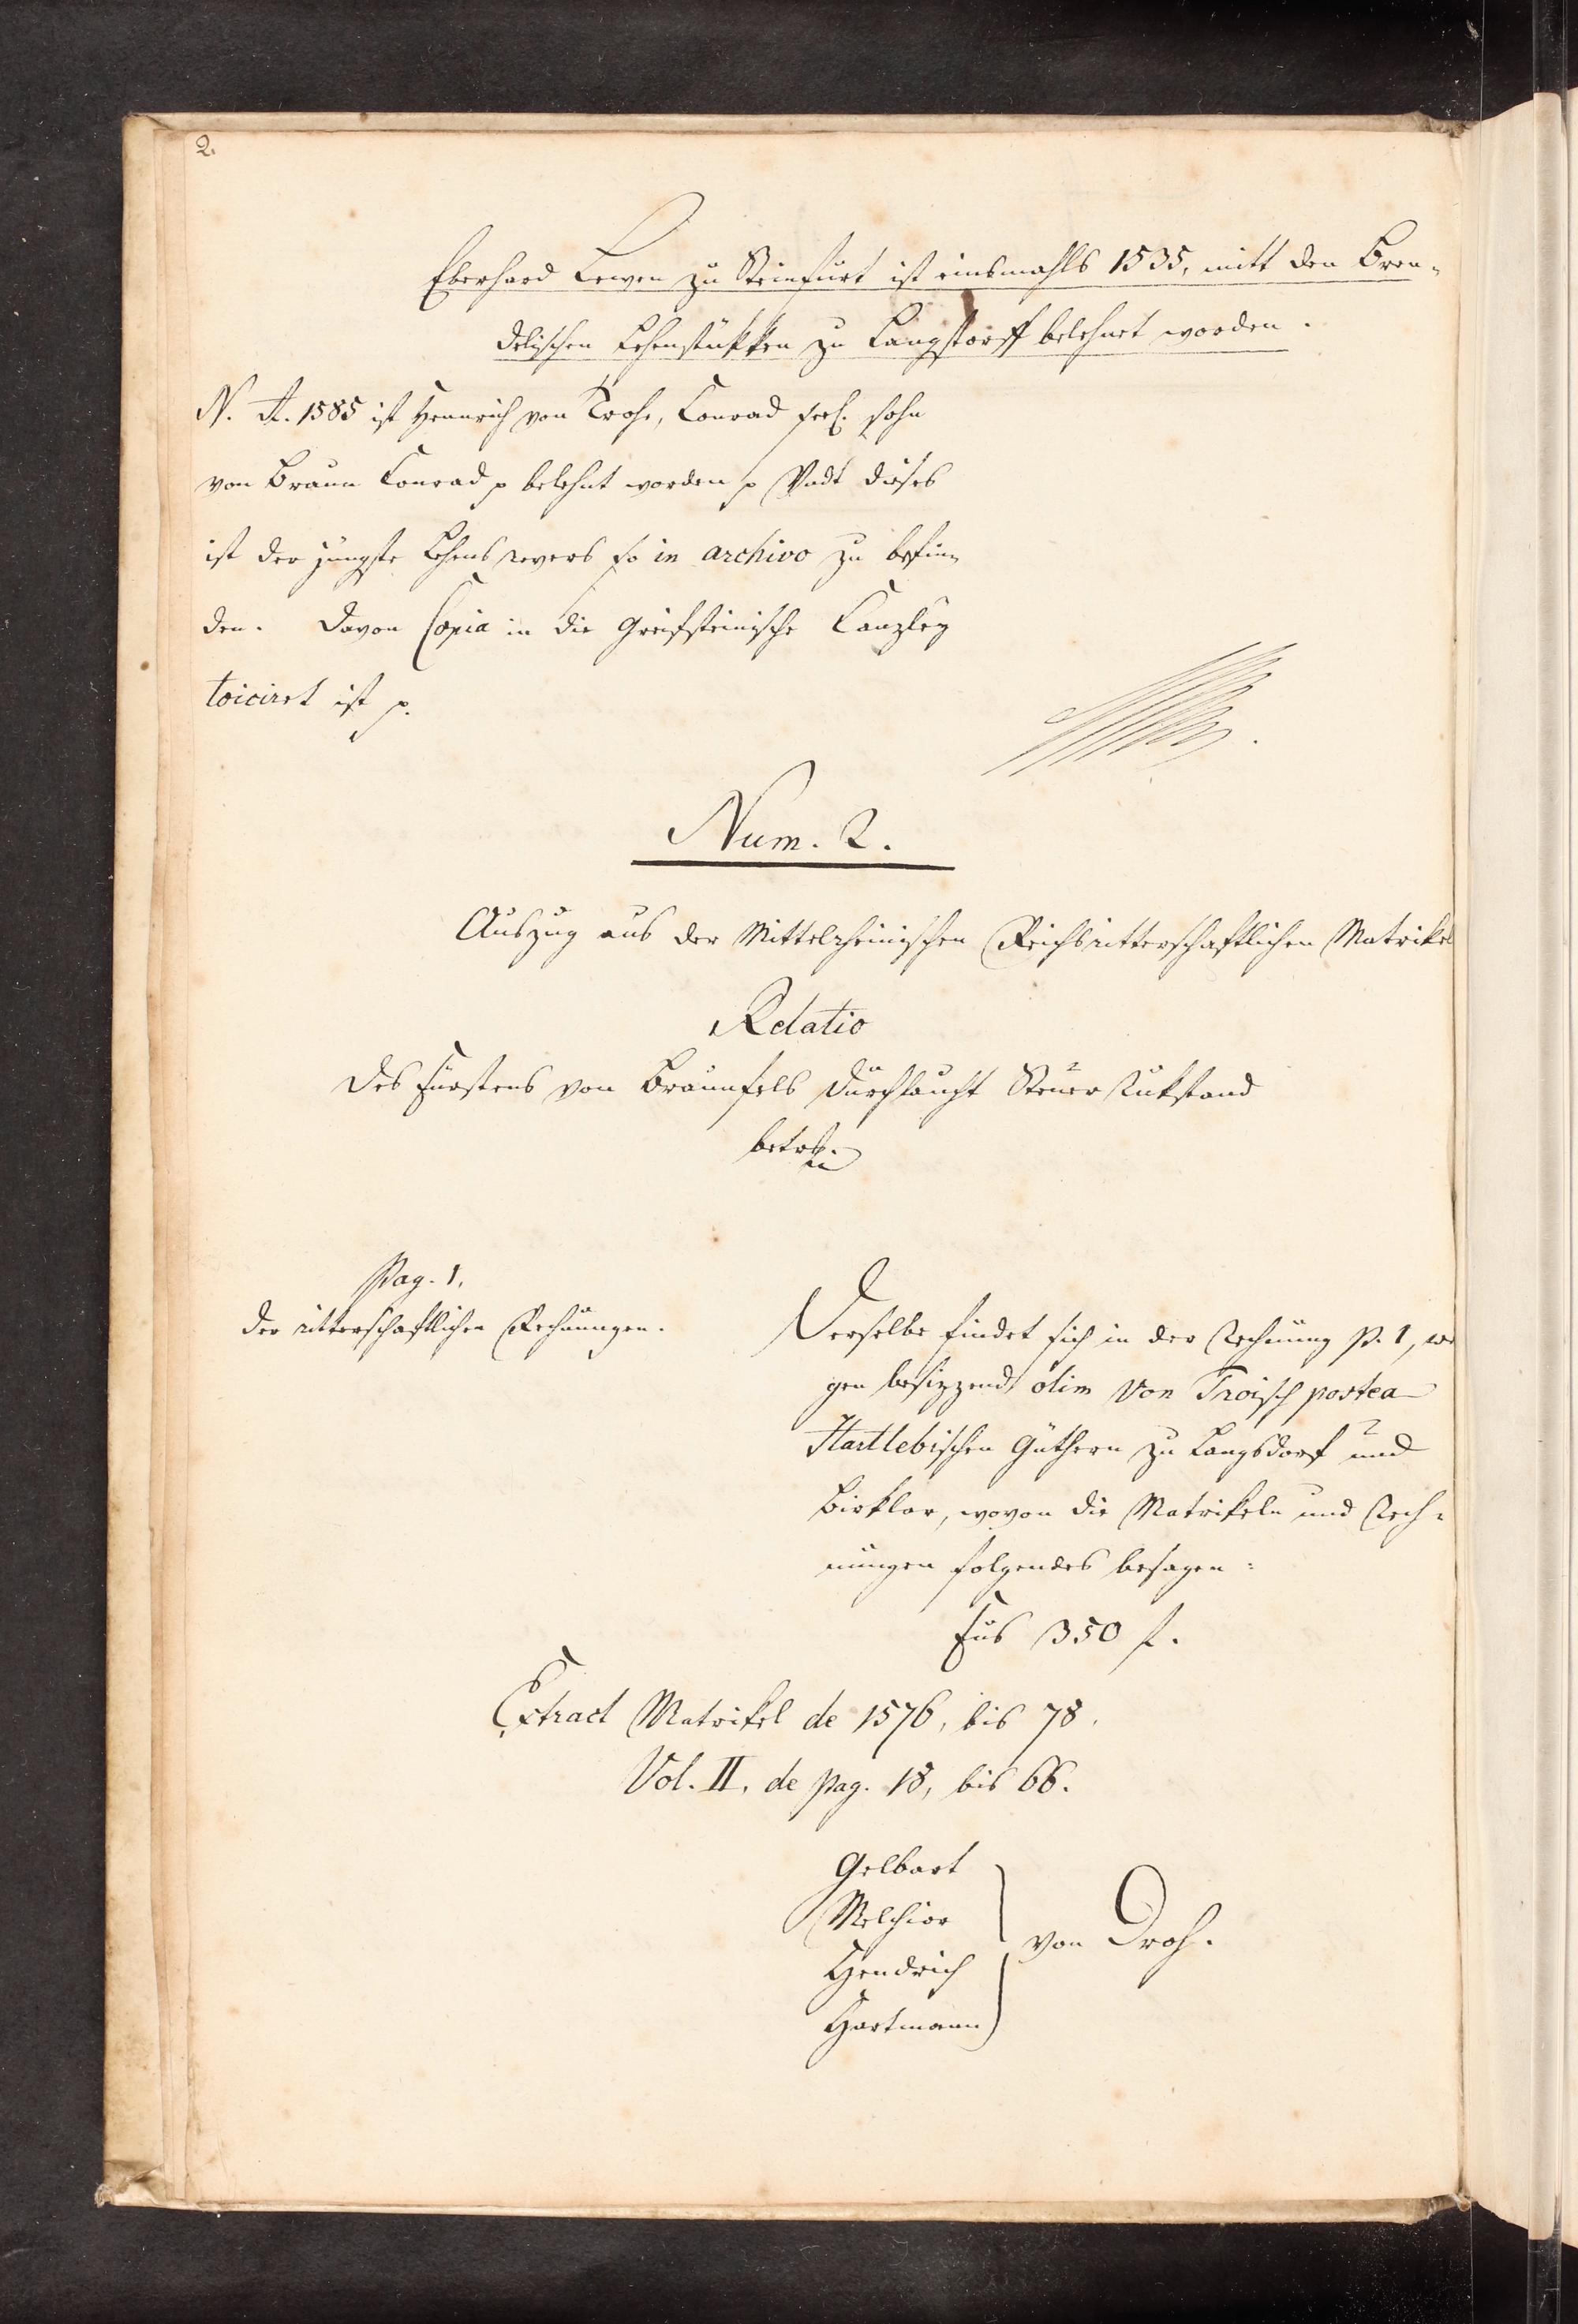 2.
Eberhard Lewen zu Steinfurt ist einsmahls 1535, mitt den Bren-
delischen Lehenstükken zu Langstorff belehnet worden.
N. A. 1585 ist Henrich von Trohe, Conrad seel. sohn
von Braun Conrad p belehnt worden p Undt dieses
ist der jüngste Lehens revers so in archivo zu befin-
den. Davon Copia in die Greifsteinische Canzley
ist p.
Num. 2.
Auszug aus der Mittelrheinischen Reichsritterschaftlichen Matrikel
Relatio
Des Fürstens von Braunfels Durchlaucht Steuer Rükstand
betr.
Pag. 1.
der ritterschaftlichen Rechnungen.
Derselbe findet sich in der Rechnung p. 1, we
gen besizzend olim von Troisch postea
Hartlebischen Güthern zu Langsdorf und
Birklar, wovon die Matrikeln und Rech-
nungen folgendes besagen:
Fus 350 f.
Extract Matrikel de 1576, bis 78.
Vol. II. de pag. 18, bis 66.
Gelbart
Melchior
Hendrich
Hartmann
von Droh.